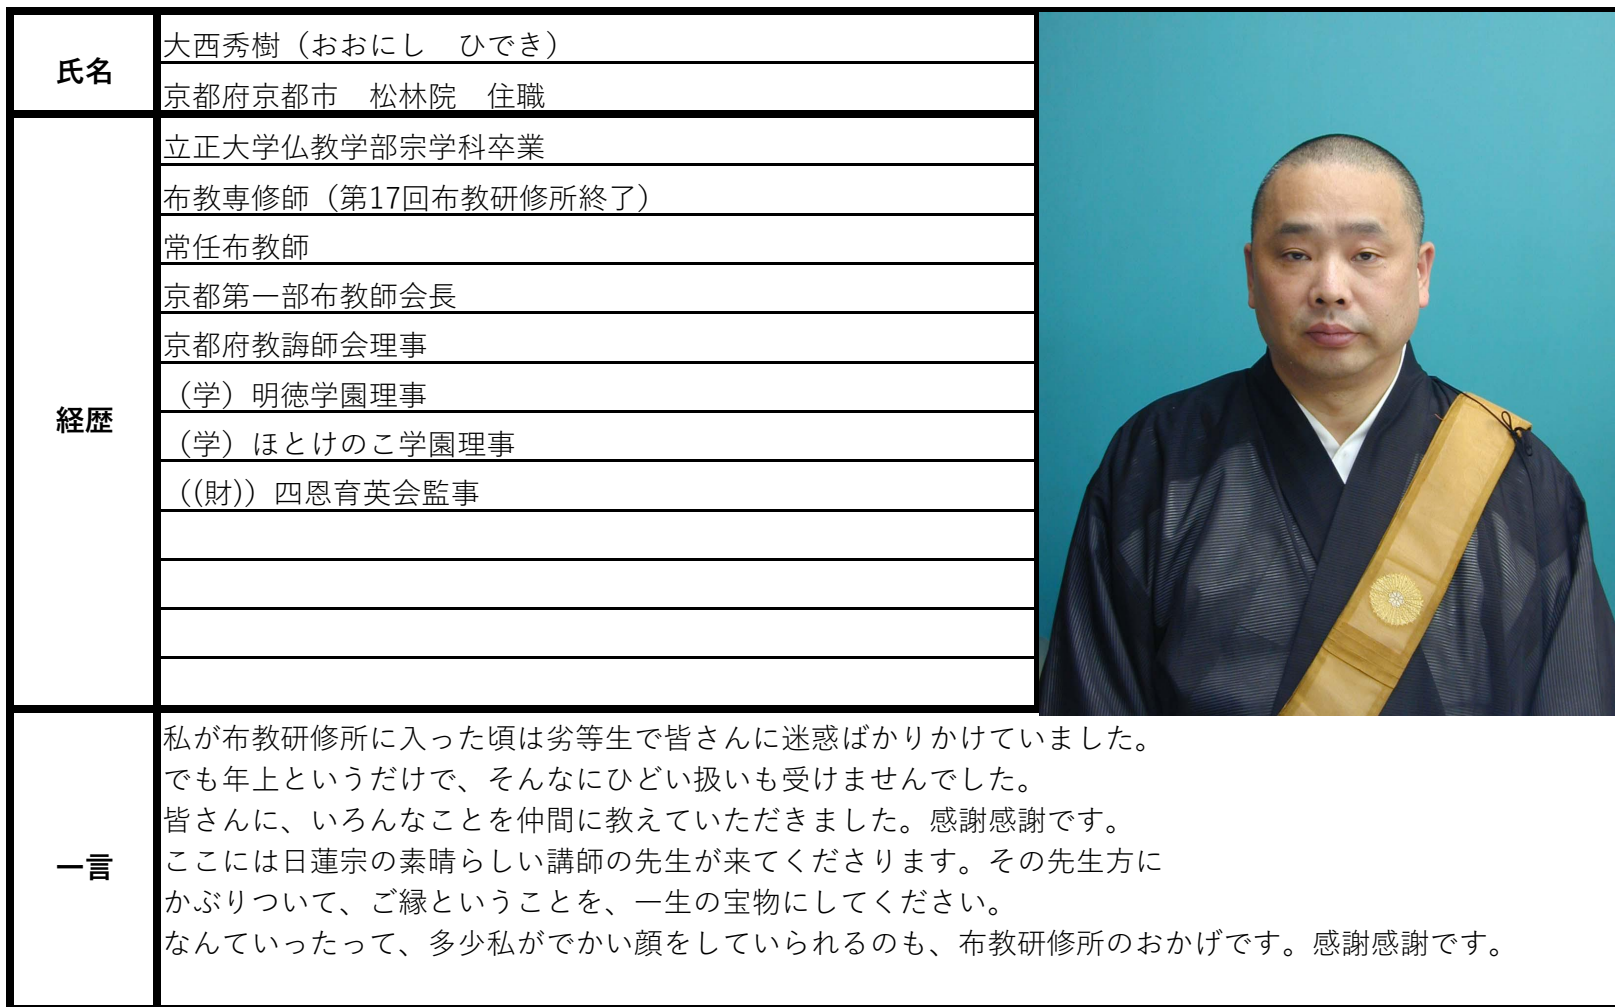 氏名
大西秀樹（おおにし　ひでき）
京都府京都市　松林院　住職
経歴
立正大学仏教学部宗学科卒業
布教専修師（第17回布教研修所終了）
常任布教師
京都第一部布教師会長
京都府教誨師会理事
（学）明徳学園理事
（学）ほとけのこ学園理事
（(財)）四恩育英会監事
一言
私が布教研修所に入った頃は劣等生で皆さんに迷惑ばかりかけていました。
でも年上というだけで、そんなにひどい扱いも受けませんでした。
皆さんに、いろんなことを仲間に教えていただきました。感謝感謝です。
ここには日蓮宗の素晴らしい講師の先生が来てくださります。その先生方に
かぶりついて、ご縁ということを、一生の宝物にしてください。
なんていったって、多少私がでかい顔をしていられるのも、布教研修所のおかげです。感謝感謝です。